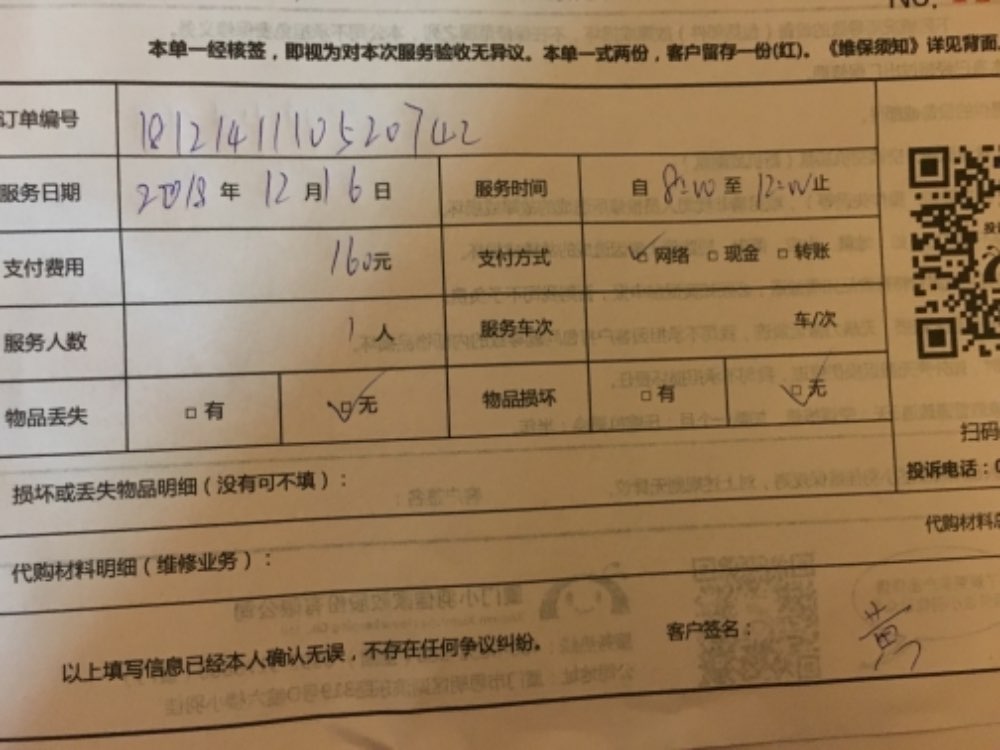 No.
本单一经核签，即视为对本次服务验收无异议。本单一式两份，客户留存一份(红)。《维保须知》详见背面。
订单编号 181214111052074２
服务日期 2018 年 12 月 16 日 服务时间 自 8:00 至 12:00 止
支付费用 160元 支付方式 ☑网络 □现金 □转账
服务人数 1 人 服务车次 车/次
物品丢失 □有 ☑无 物品损坏 □有 ☑无
扫码
投诉电话：0
损坏或丢失物品明细（没有可不填）：
代购材料总
代购材料明细（维修业务）：
客户签名： 黄
以上填写信息已经本人确认无误，不存在任何争议纠纷。